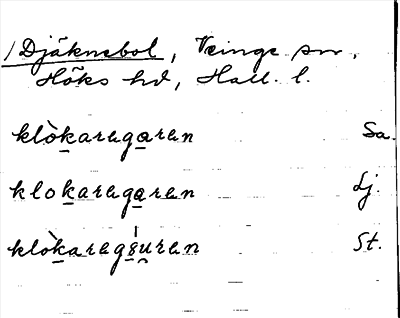 / Djäknebol, Veinge sn,
Höks hd, Hall. l.
klòkaregaren Sa.
klokaregaren Lj.
klòkaregsuren St.